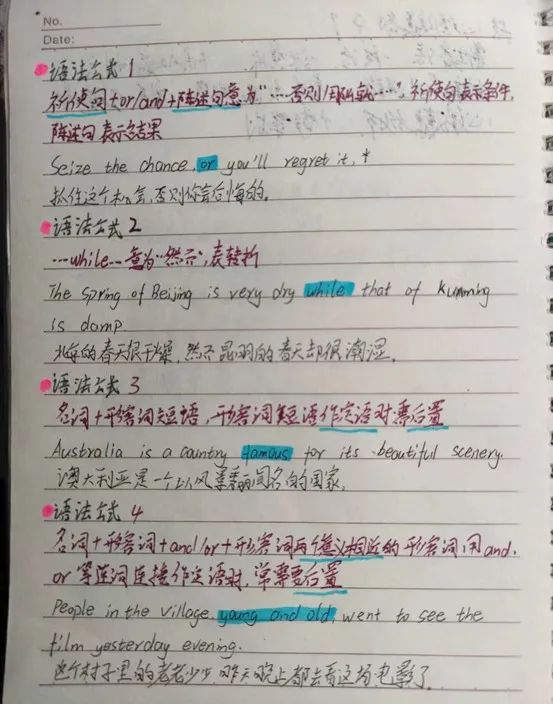 No.
Date:
语法公式1
祈使句+or/and+陈述句意为"……否则/因此就……",祈使句表示条件,
陈述句表示结果
Seize the chance, or you'll regret it,*
抓住这个机会,否则你会后悔的。
语法公式2
…while…意为"然而",表转折
The spring of Beijing is very dry while that of Kunming
is damp
北京的春天很干燥,然而昆明的春天却很潮湿。
语法公式3
名词+形容词短语,形容词短语作定语时需后置
Australia is a country famous for its beautiful scenery.
澳大利亚是一个以风景秀丽闻名的国家。
语法公式4
名词+形容词+and/or+形容词两个意义相近的形容词,用and.
or等连词连接作定语时,常需要后置
People in the village, young and old, went to see the
film yesterday evening.
这个村子里的老老少少昨天晚上都去看这场电影了。